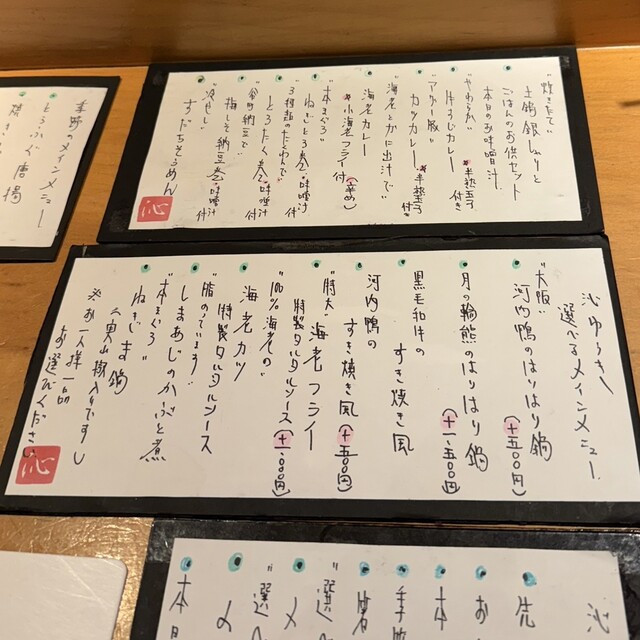 "炊きたて"
土鍋銀しゃりと
ごはんのお供セット
本日のお味噌汁
"やわらか"
牛すじカレー
*半熟玉子付き
"アグー豚"
カツカレー
*半熟玉子付き
"海老とかに出汁で"
海老カレー
*小海老フライ付(辛め)
"本まぐろ"
ねぎとろ巻・味噌汁付
"3種類のたくわんで"
とろたく巻・味噌汁付
梅しそ納豆巻・味噌汁付
"冷やし"
すだちそうめん
沁
沁ゆうき
選べるメインメニュー
"大阪"
河内鴨のはりはり鍋
(+五〇〇円)
月の輪熊のはりはり鍋
(+一、五〇〇円)
黒毛和牛の
すき焼き風
河内鴨の
すき焼き風(+五〇〇円)
"特大"海老フライ
特製タルタルソース(+一、〇〇〇円)
"100%海老の"
海老カツ
特製タルタルソース
"脂のってます"
しまあじのかぶと煮
"本まぐろ"
ねぎま鍋
(実山椒入りです)
※お一人様一品
お選びください
沁
季節のメインメニュー
とらふぐ唐揚
沁
先
お
本
手
"選
メ
"選
メ
本日